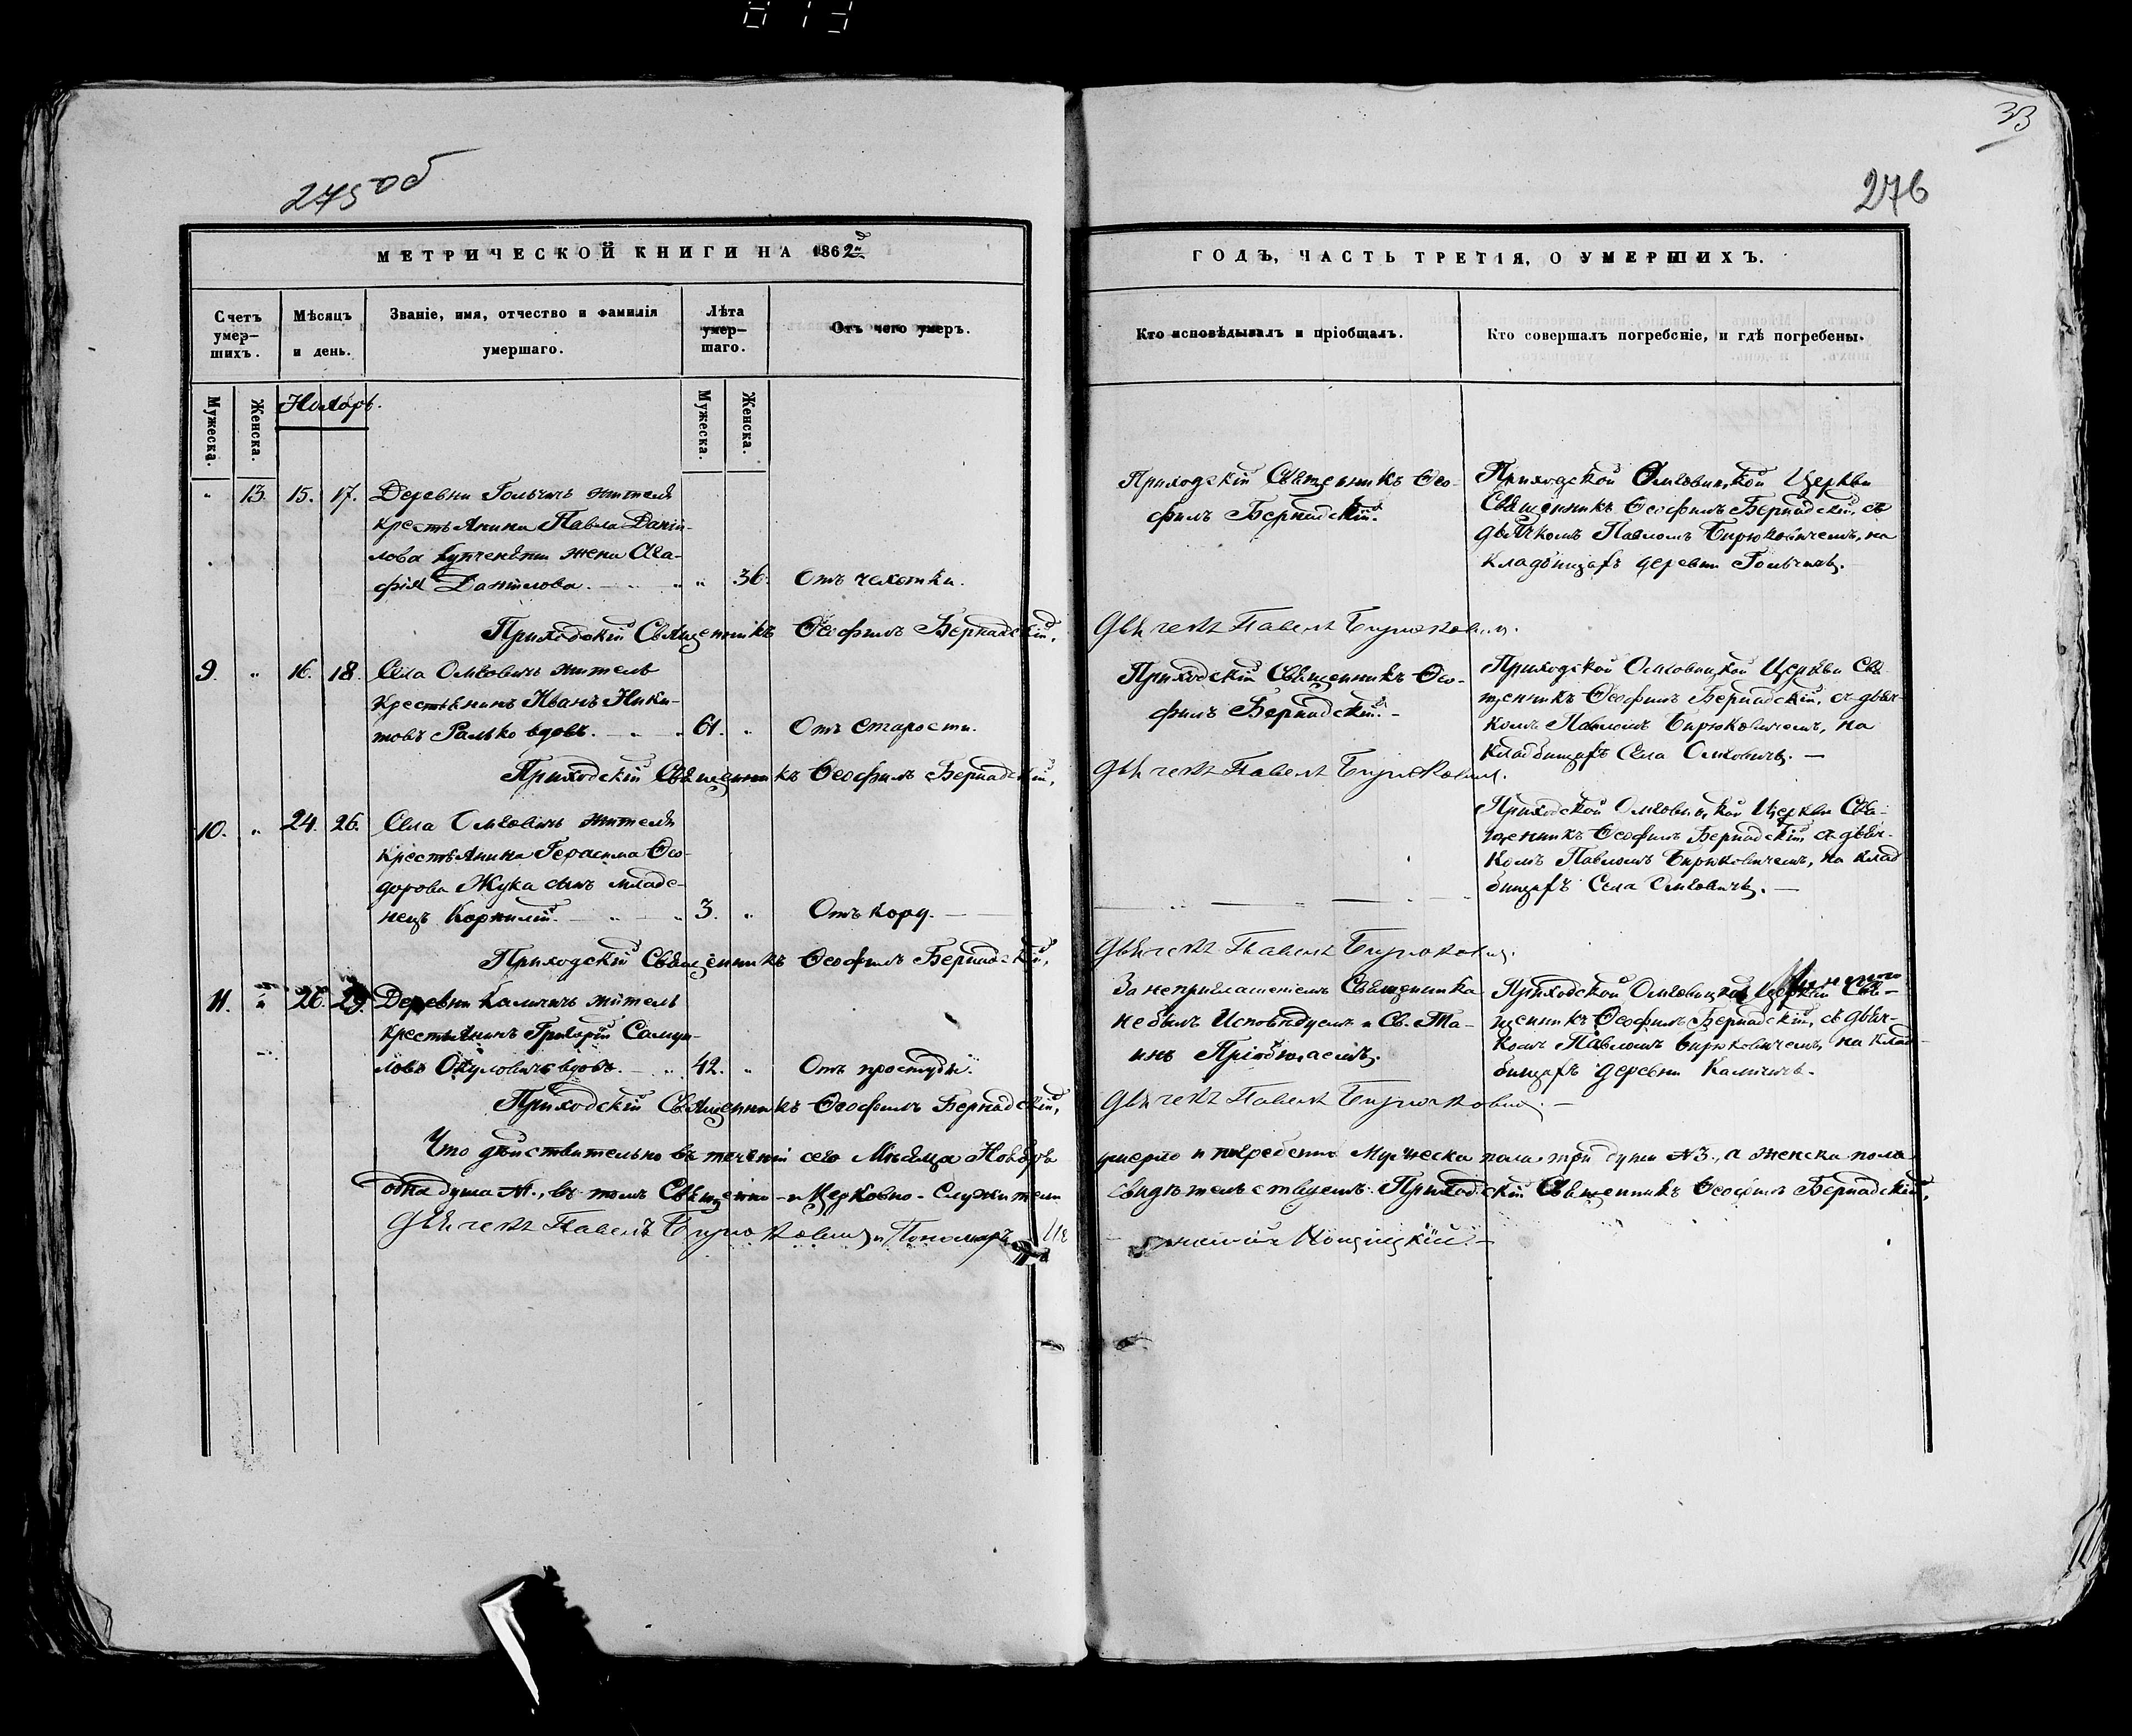 33
275 об
276
МЕТРИЧЕСКОЙ КНИГИ НА 1862й
ГОДЪ, ЧАСТЬ ТРЕТІЯ, О УМЕРШИХЪ.
Счетъ умер-шихъ.
Мѣсяцъ и день.
Званіе, имя, отчество и фамилія умершаго.
Лѣта умер-шаго.
Отъ чего умеръ.
Кто исповѣдывалъ и пріобщалъ.
Кто совершалъ погребеніе, и гдѣ погребены.
Мужеска.
Женска.
Ноябрь.
Мужеска.
Женска.
" 13. 15. 17. Деревни Гольчичъ жителя
крестьянина Павла Даніи-
лова жена Ага-
фія Данилова. " 36. Отъ чахотки.
Приходскій Священникъ Ѳео-
филъ Бернадскій.
Приходской Церкви
Священникъ Ѳеофилъ Бернадскій, съ
дьячкомъ Павломъ Бирюковичемъ, на
кладбищахъ деревни Гольчичъ.
Приходскій Священникъ Ѳеофилъ Бернадскій,
Дьячекъ Павелъ Бирюковичъ.
9. " 16. 18. Села житель
крестьянинъ Иванъ Ники-
товъ Ралько вдовъ. 61. " Отъ старости.
Приходскій Священникъ Ѳео-
филъ Бернадскій.
Приходской Церкви Свя-
щенникъ Ѳеофилъ Бернадскій, съ дьяч-
комъ Павломъ Бирюковичемъ, на
кладбищахъ Села
Приходскій Священникъ Ѳеофилъ Бернадскій,
Дьячекъ Павелъ Бирюковичъ.
10. " 24. 26. Села жителя
крестьянина Герасима Ѳео-
дорова Жука сынъ младе-
нецъ Корнилій. 3. " Отъ кору.
Приходской Церкви Свя-
щенникъ Ѳеофилъ Бернадскій съ дьяч-
комъ Павломъ Бирюковичемъ, на клад-
бищахъ Села
Приходскій Священникъ Ѳеофилъ Бернадскій,
Дьячекъ Павелъ Бирюковичъ.
11. " 26. 29. Деревни Каличичъ житель
крестьянинъ Григорій Самуи-
ловъ вдовъ. 42. " Отъ простуды.
За неприглашеніемъ Священника
не былъ Исповѣдуемъ и Св. Та-
инъ Пріобщаемъ.
Приходской Церкви Свя-
щенникъ Ѳеофилъ Бернадскій, съ дьяч-
комъ Павломъ Бирюковичемъ, на клад-
бищахъ деревни Каличичъ.
Приходскій Священникъ Ѳеофилъ Бернадскій,
Дьячекъ Павелъ Бирюковичъ.
Что дѣйствительно въ теченіи сего Мѣсяца Ноября
умерло и погребено Мужеска пола три души №3., а женска пола
одна душа №1., въ томъ Священно- и Церковно-Служители
свидѣтельствуемъ: Приходскій Священникъ Ѳеофилъ Бернадскій,
Дьячекъ Павелъ Бирюковичъ и Пономарь